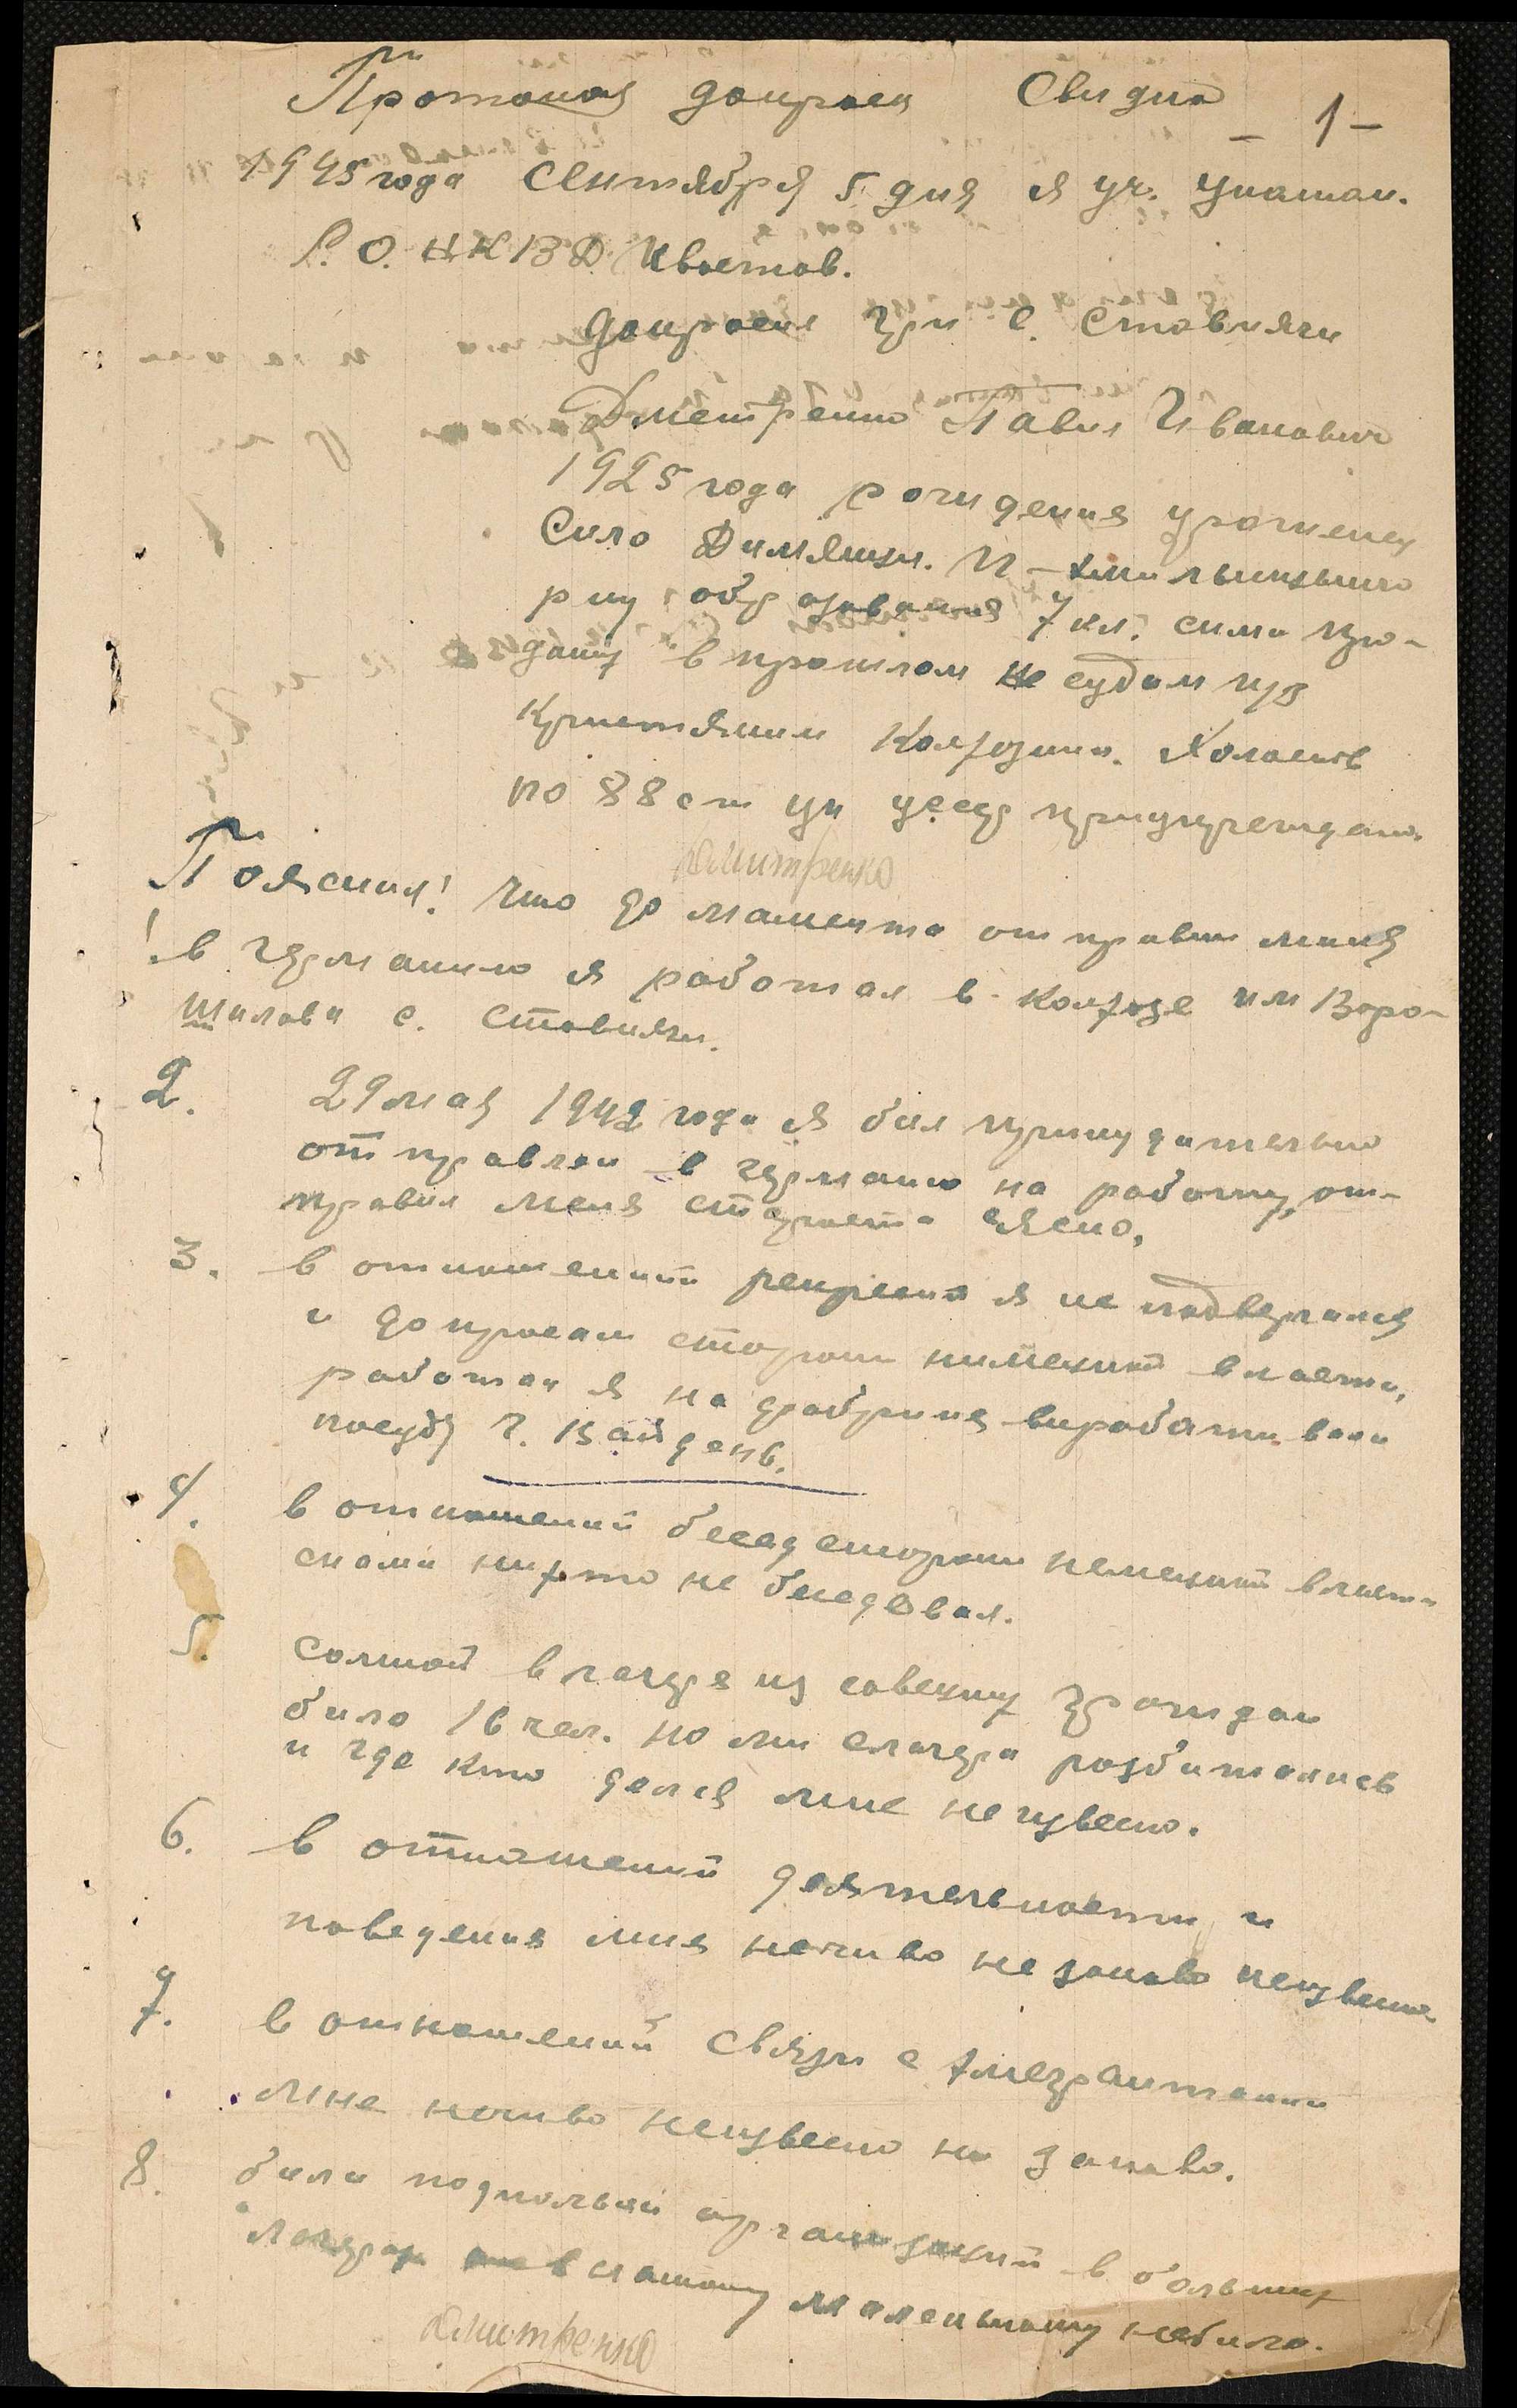 Протокол допроса Свидно
- 1 -
1945 года Сентября 5 дня я уч. уполном.
Р. О. НКВД Цветов.
допросил гри с. Ставнячи
Дметренко Павел Иванович
1925 года рождения уроженец
Село Димянци. П-хмильницкого
р-ну образования 7 кл. сили про-
дану в прошлом не судим из
Криетянин Колгозник. Холост
по 88 ст ук усср придупрежден.
Дмитренко
Пояснил! что до мамента отправки миня
в германию я работал в колгозе им Воро-
шилова с. Ставнячи.
2. 29 мая 1942 года я бил принудительно
отправлен в германию на работу, от-
правил меня староста село,
3. в отношений репресий я не подвергался
и допросам сторони нимецкий власти,
работал я на фабрике вироблювали
посуду г. Вайдень.
4. в отношений бесед сторони немецкий власти
снами нихто не беседовал.
5. сомной в лагере из совецких граждан
било 16 чел. но ми слагера розбижались
и где кто делся мне неизвесно.
6. в отношений деятельности и
поведения мня нечиво не заново неизвесно.
7. в отношений связи с эмегрантами
мне ничиво неизвесно не заново.
8. били подпольни организаций в больших
лагерах а в нашому маленькому небило.
Дмитренко